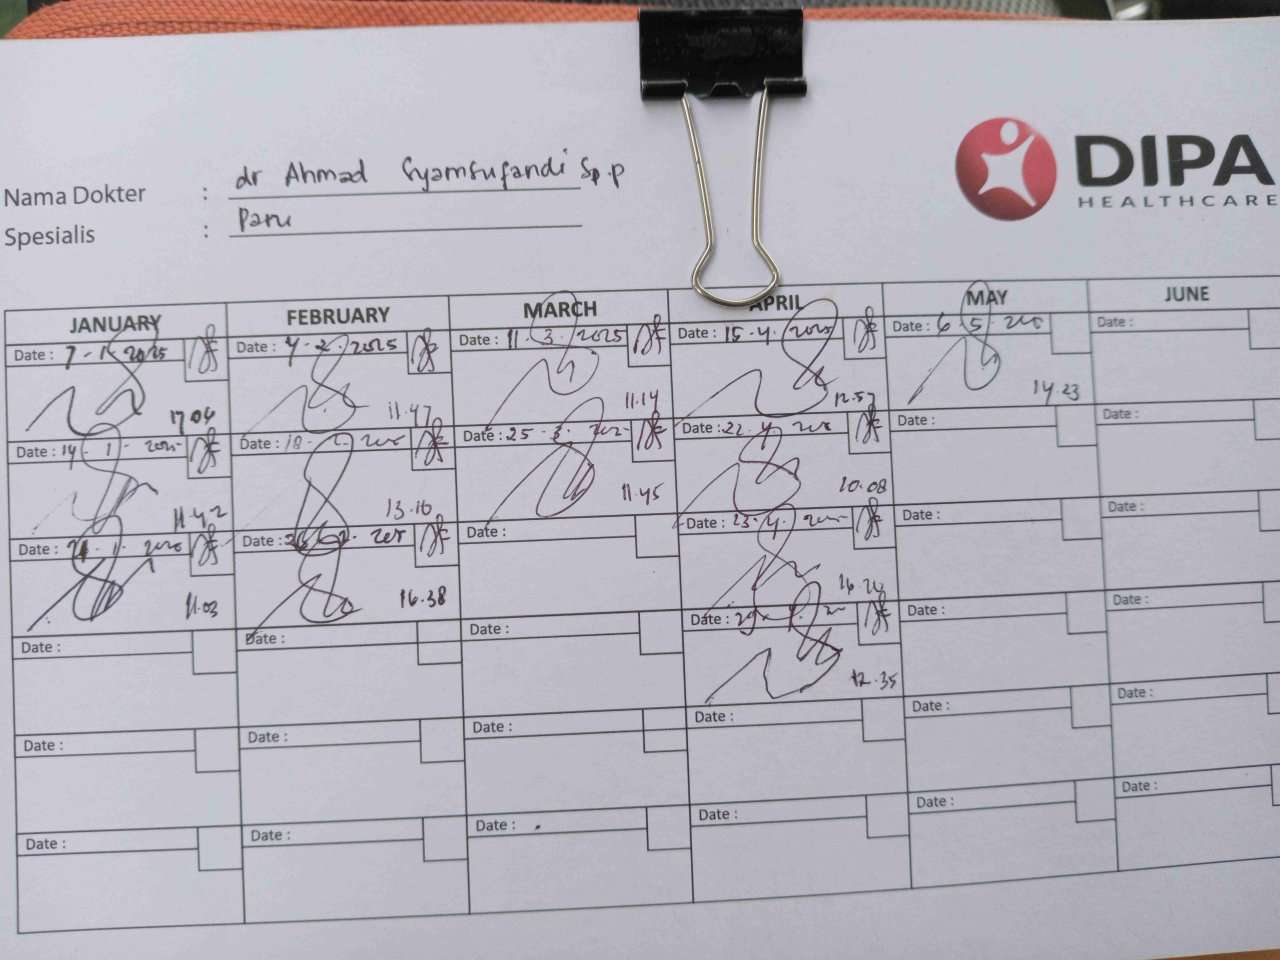 DIPA
HEALTHCARE
Nama Dokter : dr Ahmad Syamsufandi Sp.p
Spesialis : Paru
JANUARY FEBRUARY MARCH APRIL MAY JUNE
Date : 7-1-2025 Date : 4-2-2025 Date : 11.3.2025 Date : 15.4.2025 Date : 6.5. Date :
17.04 11.47 11.14 12.57 14.23
Date : 14.1.2025 Date : 18-2. Date : 25.3. Date : 22.4. Date : Date :
11.42 13.16 11.45 10.08
Date : 21.1. Date : 2. Date : Date : 23.4. Date : Date :
11.03 16.38 16.26
Date : Date : Date : Date : 29. 4. Date : Date :
12.35
Date : Date : Date : Date : Date : Date :
Date : Date : Date : Date : Date : Date :